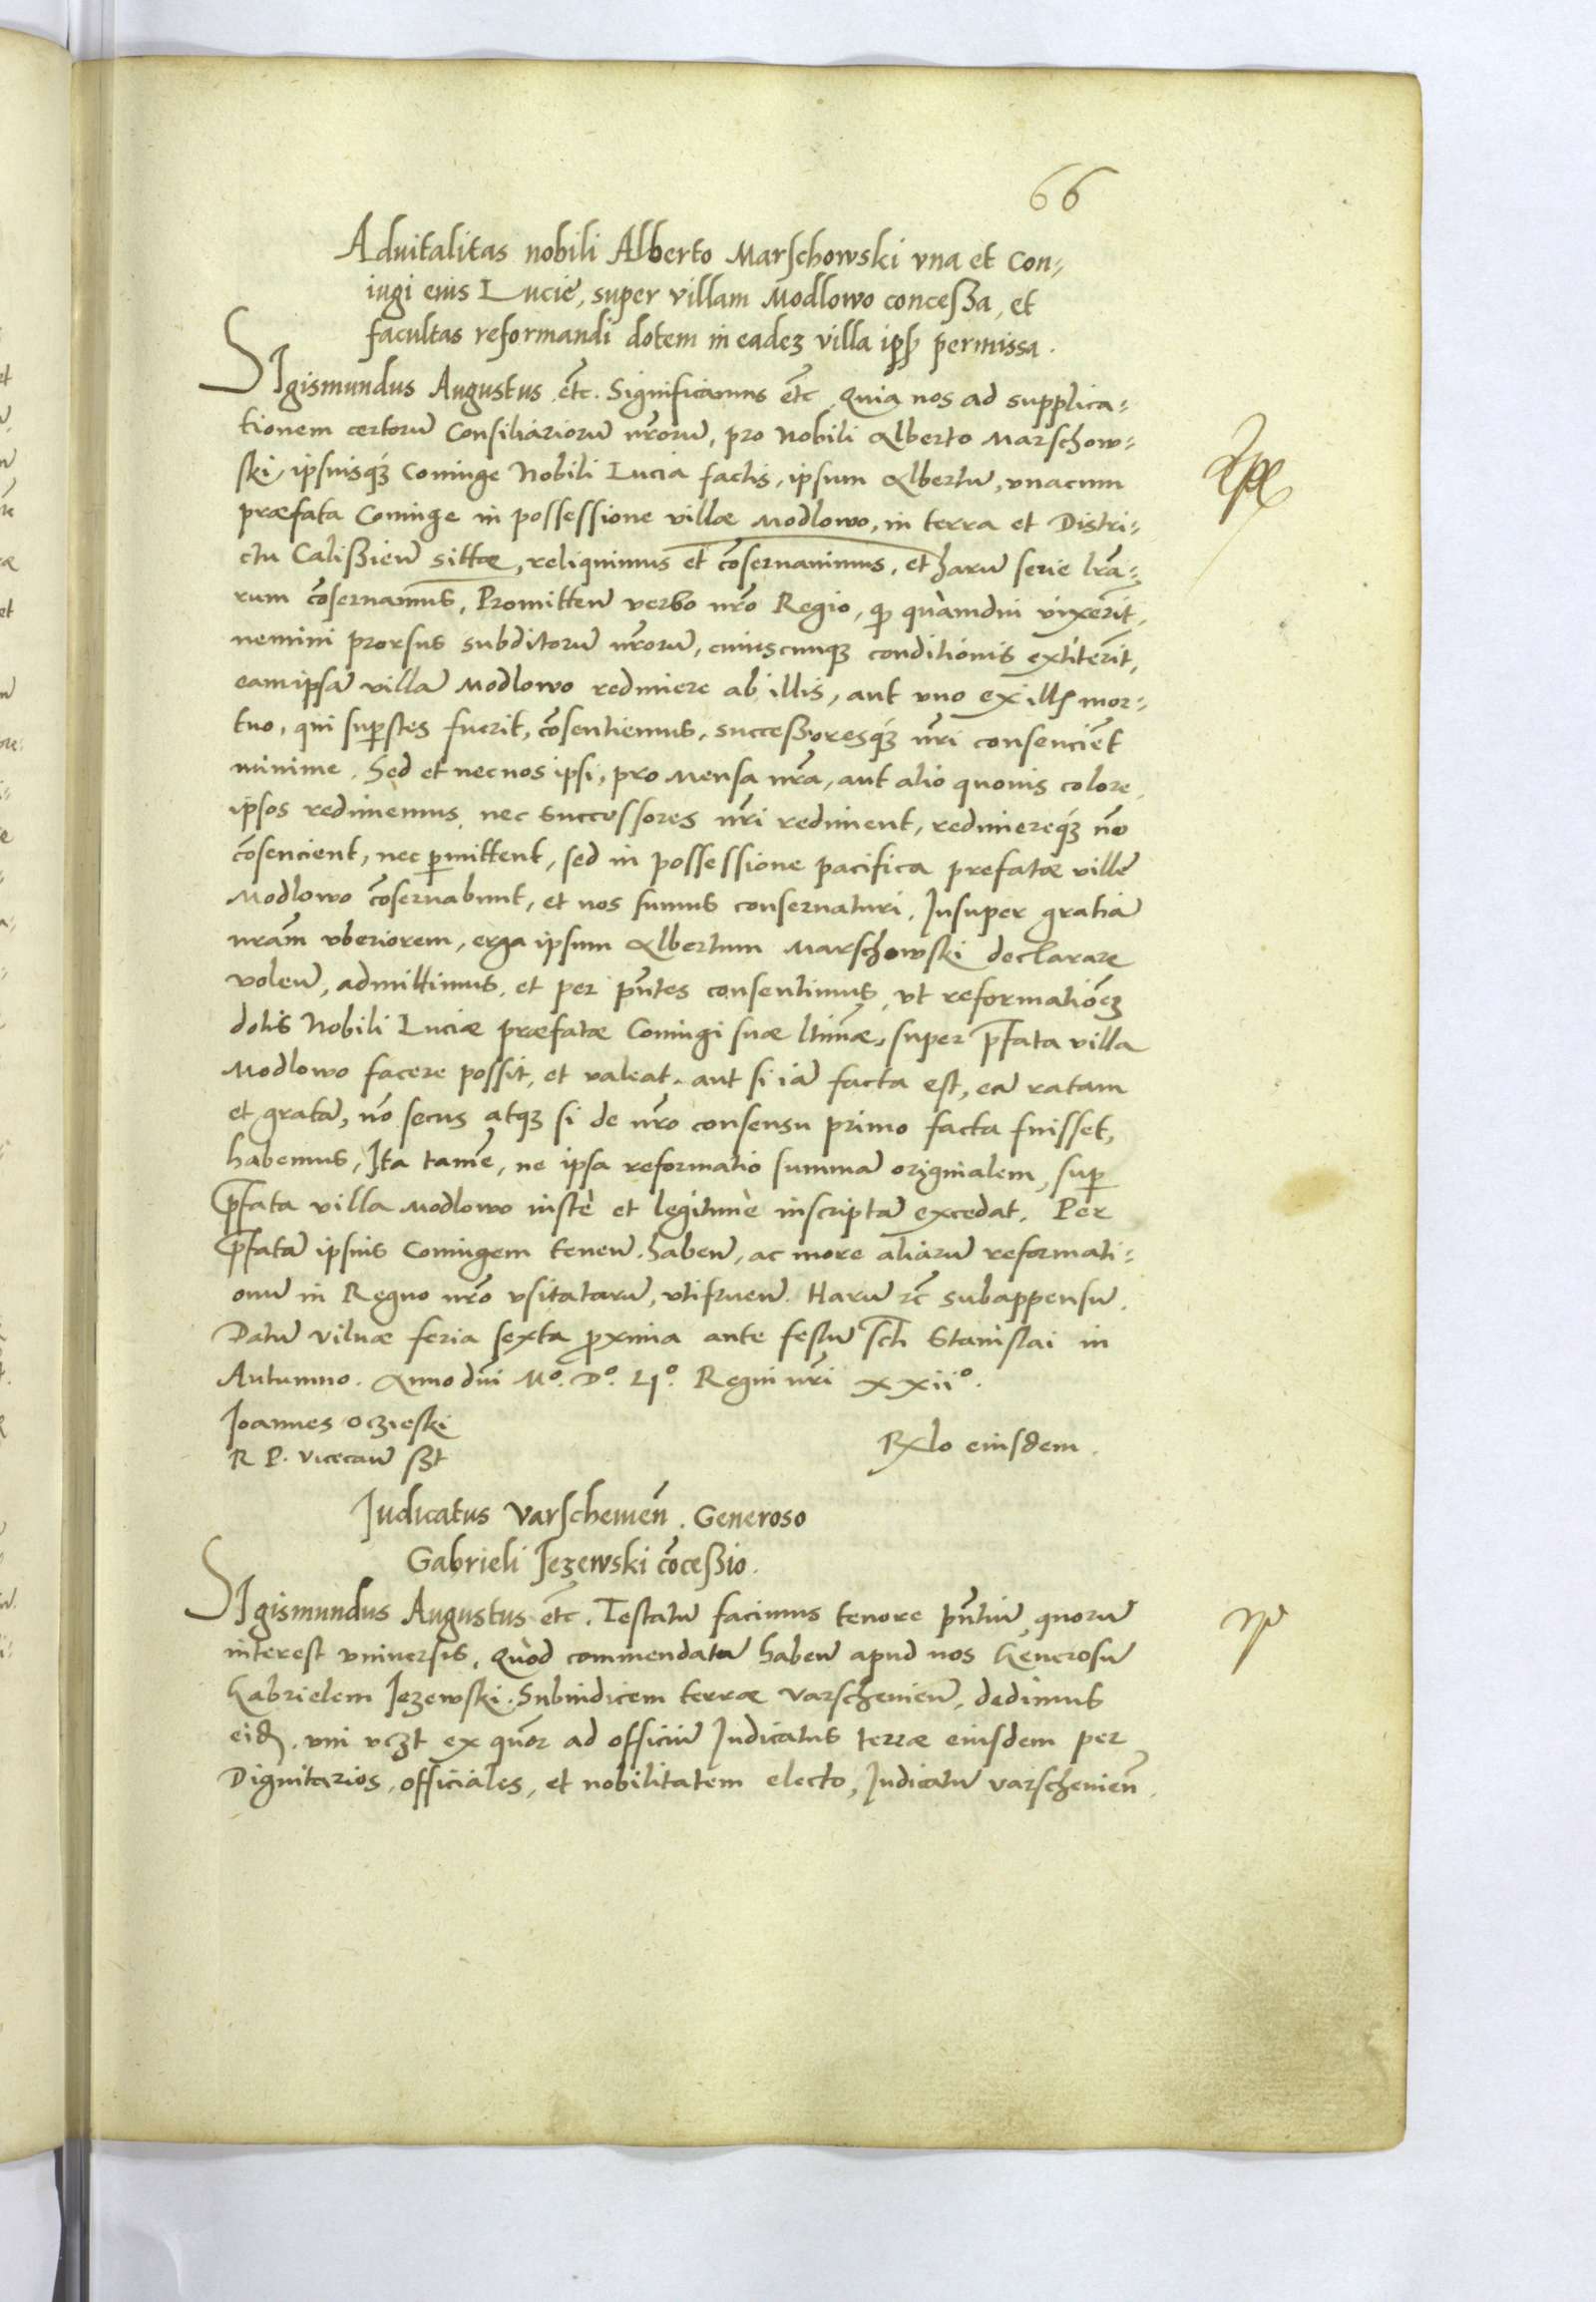 66
Aduitalitas nobili Alberto Marschowski vna et con-
iugi eius Lucie, super villam Modlowo conceßa, et
facultas reformandi dotem in eadeʒ villa ip̄s permissa.
SIgismundus Augustus etc̄. Significamus etc̄ Quia nos ad supplica-
tionem certorū Consiliariorū nr̄orū, pro Nobili Alberto Marschow-
ski, ipsiusqꝫ Coniuge Nobili Lucia factis, ipsum Albertū, vnacum
præfata Coniuge in possessione villæ Modlowo, in terra et Distri-
ctu Calißien̄ sittæ, reliquimus et cōseruauimus, et harū serie lr̄a-
rum cōseruamus, Promitten̄ verbo nr̄o Regio, ꝙ quàmdiu vixerit,
nemini prorsus subditorū nr̄orū, cuiuscunqꝫ conditionis extiterit,
eamipsā villā Modlowo redimere ab illis, aut vno ex illis mor-
tuo, qui suꝑstes fuerit, cōsentiemus, successoresqꝫ nr̄i consencient
minime. Sed et nec nos ipsi, pro Mensa nr̄a, aut alio quouis colore,
ipsos redimemus, nec Successores nr̄i rediment, redimereqꝫ nō
cōsencient, nec ꝑmittent, sed in possessione pacifica prefatæ ville
Modlowo cōseruabunt, et nos sumus conseruaturi. Insuper gratiā
nram̄ vberiorem, erga ipsum Albertum Marschowski declarare
volen̄, admittimus, et per pn̄tes consentimus, vt reformationēʒ
dotis Nobili Luciæ præfatæ Coniugi suæ ltimǣ, super p̄fata villa
Modlowo facere possit, et valeat, aut si iā facta est, eā ratam
et gratā, nō secus atqꝫ si de nr̄o consensu primo facta fuisset,
habemus, Ita tamē, ne ipsa reformatio summā originalem, suꝑ
p̄fata villa Modlowo iustè et legitimè inscriptā excedat. Per
p̄fatā ipsius Coniugem tenen̄. haben̄, ac more aliarū reformati-
onū in Regno nr̄o vsitatarū, vtifruen̄. Harū etc̄ subappensū.
Datū Vilnæ feria sexta ꝓxima ante festū Scti̅ Stanislai in
Autumno. Anno dn̄i Mº. Dº. LIº. Regni nr̄i xxiiº.
Joannes Oczieski
R P. Vicecan̄ sßt
Rxlo eiusdem.
Judicatus Varschewien̄. Generoso
Gabrieli Jezewski cōceßio.
SIgismundus Augustus etc̄. Testatū facimus tenore pn̄tiū, quorū
interest vniuersis, Quòd commendatū haben̄ apud nos Generosū
Gabrielem Jezewski. Subiudicem terræ Varscheuien̄, dedimus
eidem. vni vczt ex quor̄ ad officiū Judicatus terræ eiusdem per
Dignitarios, officiales, et nobilitatem electo, Judicatū varscheuien̄.